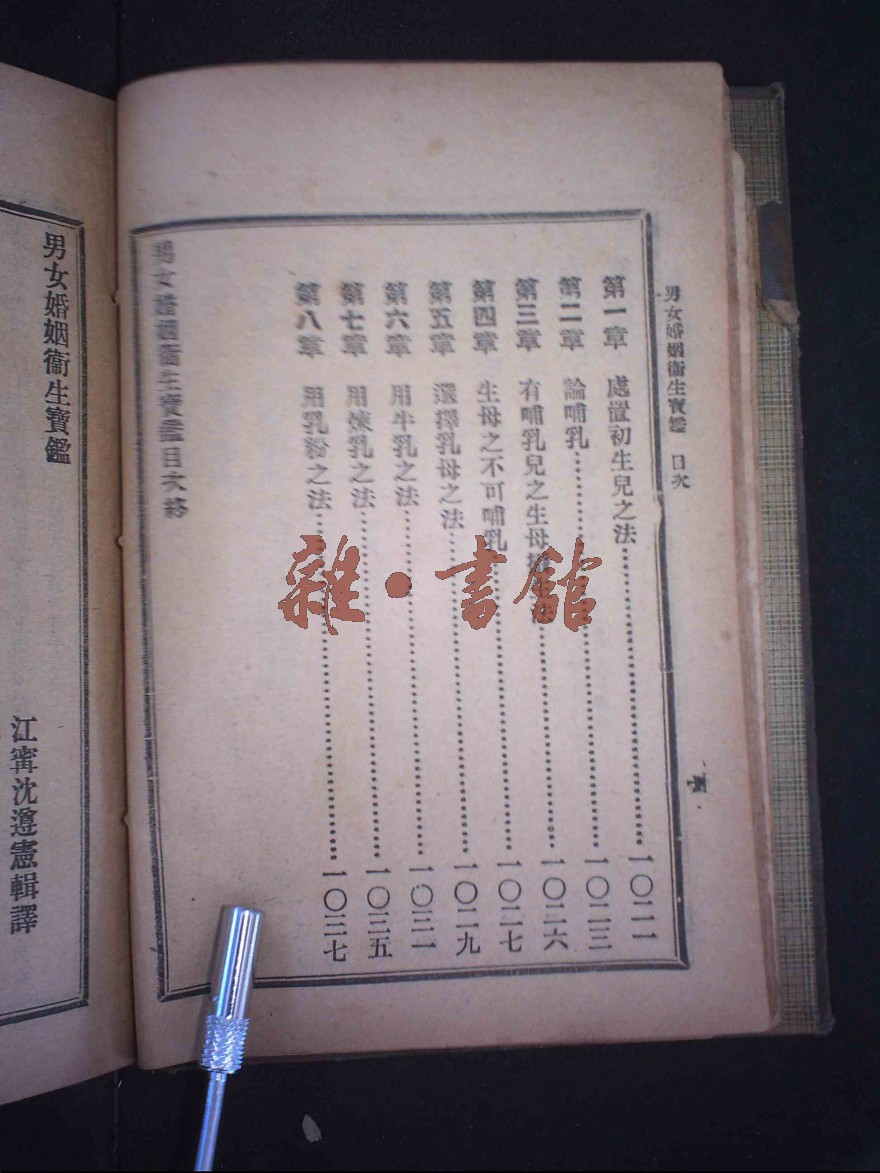 男女婚姻衞生寶鑑 目次
第一章 處置初生兒之法……一〇二一
第二章 論哺乳……一〇二三
第三章 有哺乳兒之生母……一〇二六
第四章 生母之不可哺乳……一〇二七
第五章 選擇乳母之法……一〇二九
第六章 用牛乳之法……一〇三一
第七章 用煉乳之法……一〇三五
第八章 用乳粉之法……一〇三七
男女婚姻衞生寶鑑目次終
男女婚姻衞生寶鑑
江甯沈遵憲輯譯
雜·書館